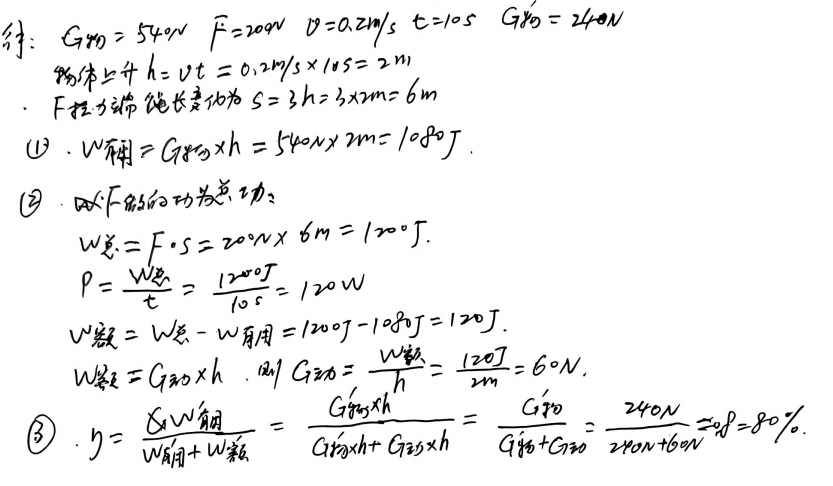 解: G物=540N F=200N v=0.2m/s t=10s G物′=240N
物体上升 h=vt=0.2m/s×10s=2m
F拉力端绳长变化为 s=3h=3×2m=6m
① W有用=G物×h=540N×2m=1080J.
② F做的功为总功:
W总=F·s=200N×6m=1200J.
P=W总/t=1200J/10s=120W
W额=W总-W有用=1200J-1080J=120J.
W额=G动×h.则G动=W额/h=120J/2m=60N.
③ η=W′有用/(W′有用+W′额)=G′物×h/(G′物×h+G动×h)=G′物/(G′物+G动)=240N/(240N+60N)=0.8=80%.